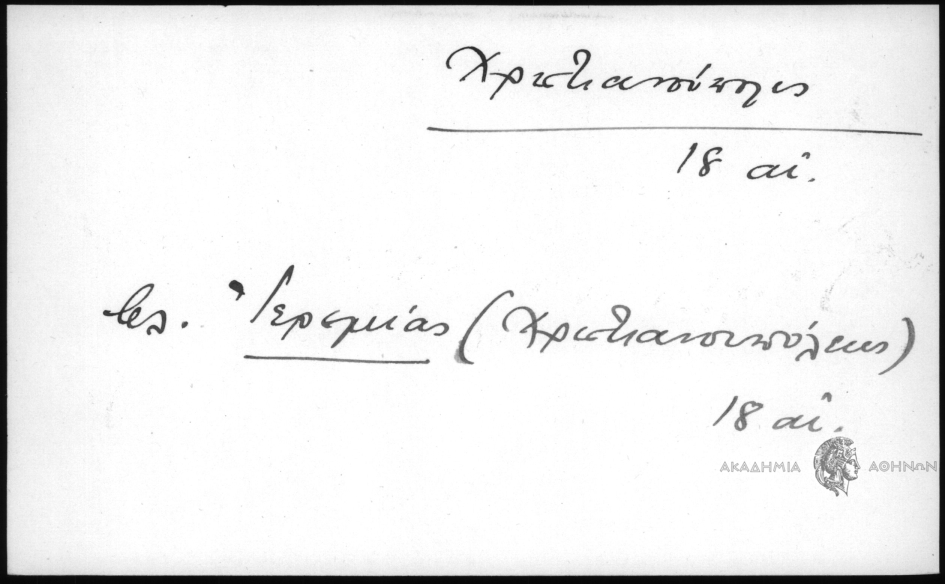 Χριστιανούπολις
18 αἰ.
βλ. Ἱερεμίας (Χριστιανουπόλεως)
18 αἰ.
ΑΚΑΔΗΜΙΑ ΑΘΗΝΩΝ